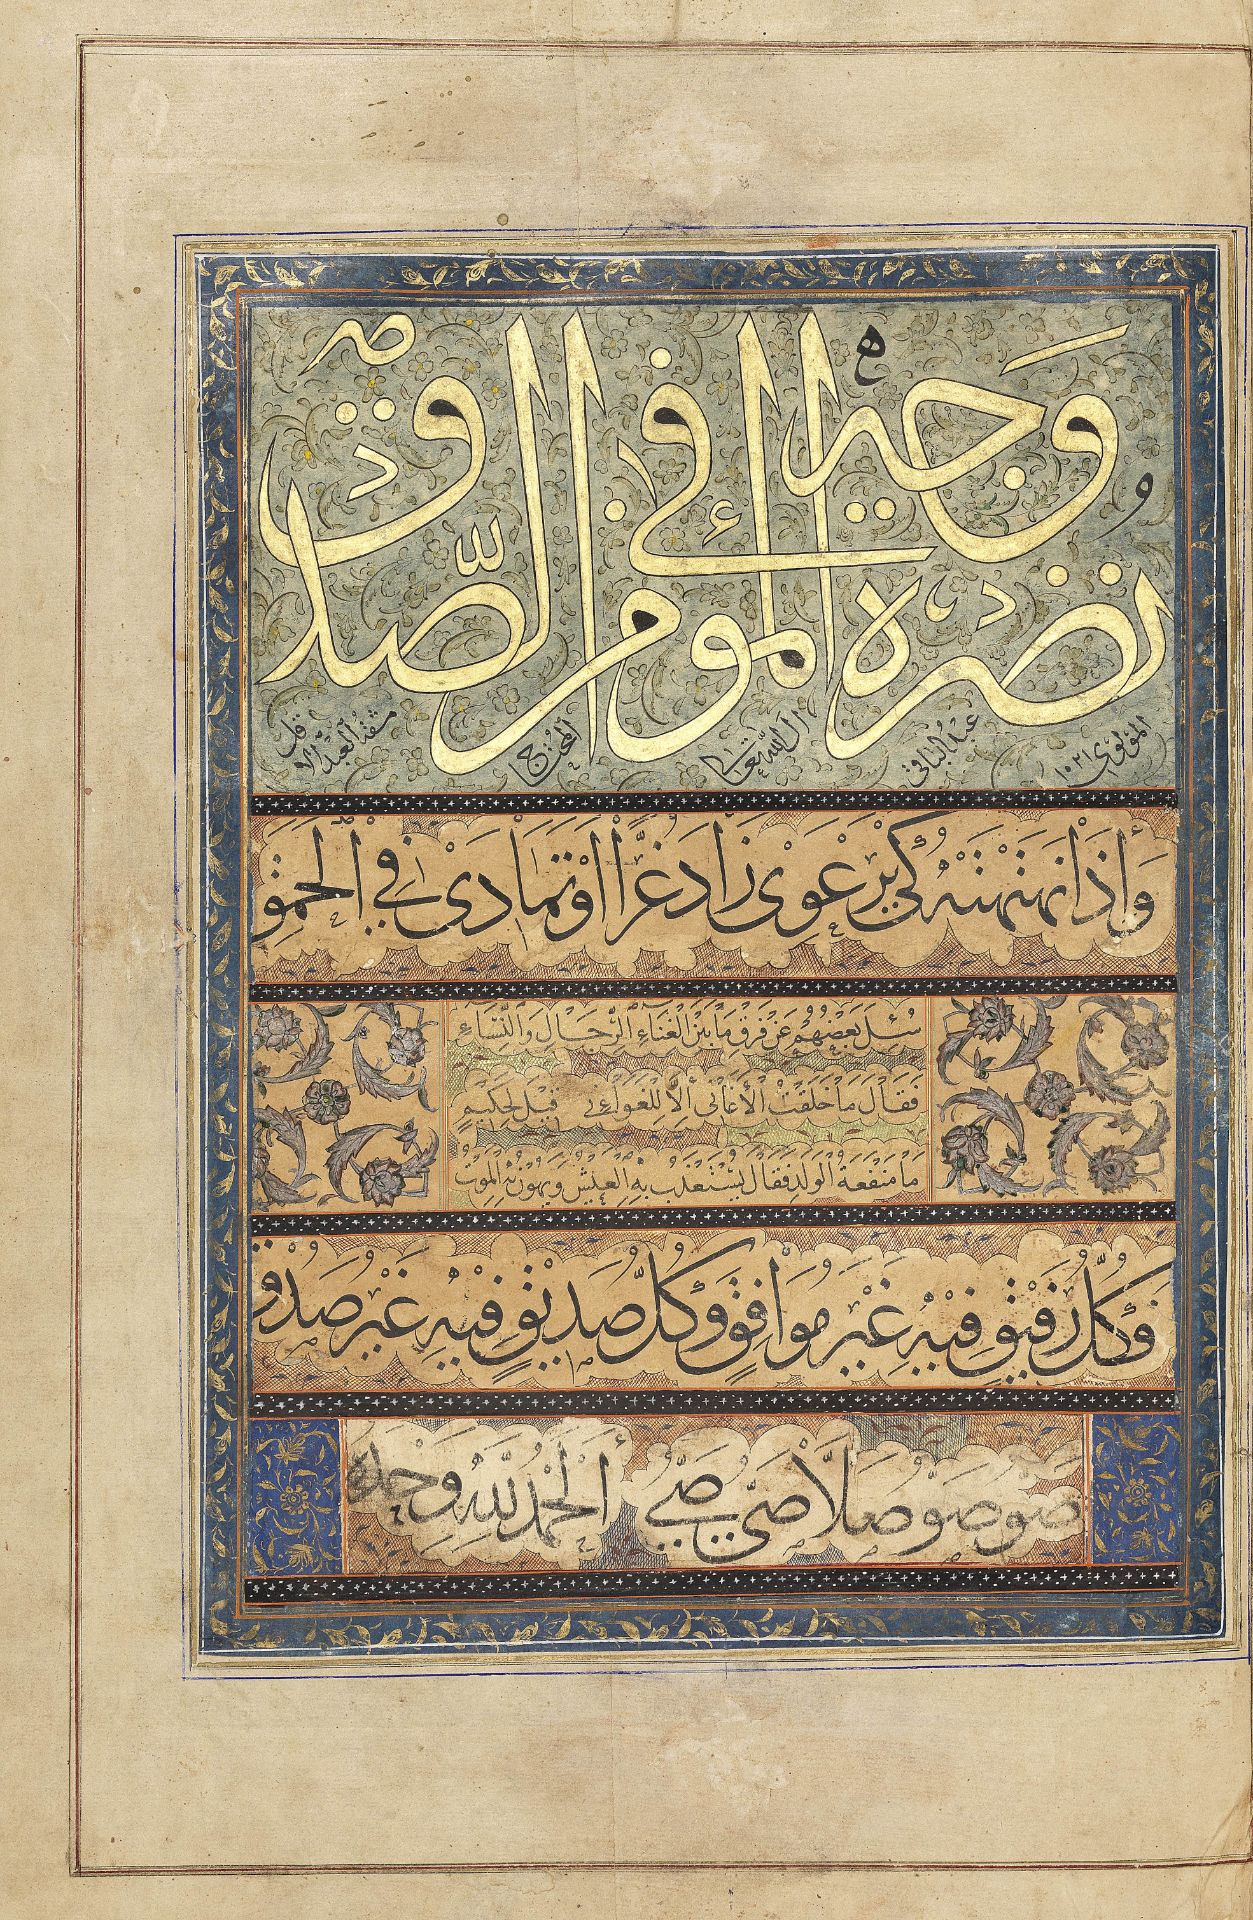 نضرة وجه المؤمن في الصدق
مشقه العبد الاقل المحتاج الى الله تعالى عبد الباقي المولوي ١٠٢١
وَإِذَا نَهْنَهْتَهُ كَيْ يَرْعَوِي زَادَ غَرًّا أَوْ تَمَادَى فِي الْحُمْقِ
سُئِلَ بَعْضُهُمْ عَنْ فَرْقِ مَا بَيْنَ الْغِنَاءِ الرِّجَالِ وَالنِّسَاءِ
فَقَالَ مَا خُلِقَتْ الْأَغَانِي إِلَّا لِلْغَوَانِي قِيلَ لِحَكِيمٍ
مَا مَنْفَعَةُ الْوَلَدِ فَقَالَ يُسْتَعْذَبُ بِهِ الْعَيْشُ وَيَهُونُ بِهِ الْمَوْتُ
وَكُلُّ رَفِيقٍ فِيهِ غَيْرُ مُوَافِقٍ وَكُلُّ صَدِيقٍ فِيهِ غَيْرُ صَدُوقِ
صو صو صلا صى صي الْحَمْدُ لِلَّهِ وَحْدَهُ